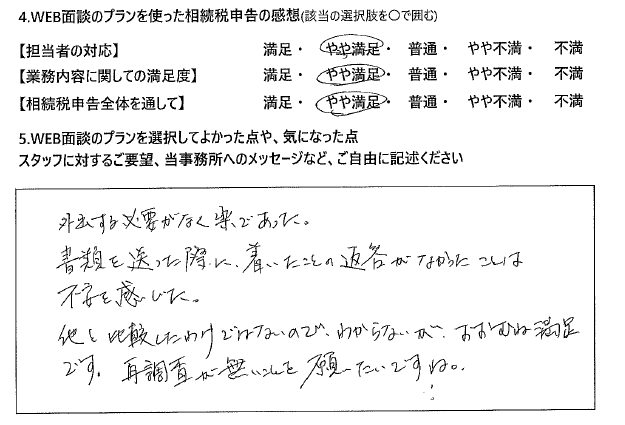 4.WEB面談のプランを使った相続税申告の感想(該当の選択肢を〇で囲む)
【担当者の対応】 満足・ やや満足・ 普通・ やや不満・ 不満
【業務内容に関しての満足度】 満足・ やや満足・ 普通・ やや不満・ 不満
【相続税申告全体を通して】 満足・ やや満足・ 普通・ やや不満・ 不満
5.WEB面談のプランを選択してよかった点や、気になった点
スタッフに対するご要望、当事務所へのメッセージなど、ご自由に記述ください
外出する必要がなく楽であった。
書類を送った際に、着いたことの返答がなかったことは
不安を感じた。
他と比較したわけではないので、わからないが、おおむね満足
です。再調査が無いことを願いたいですね。